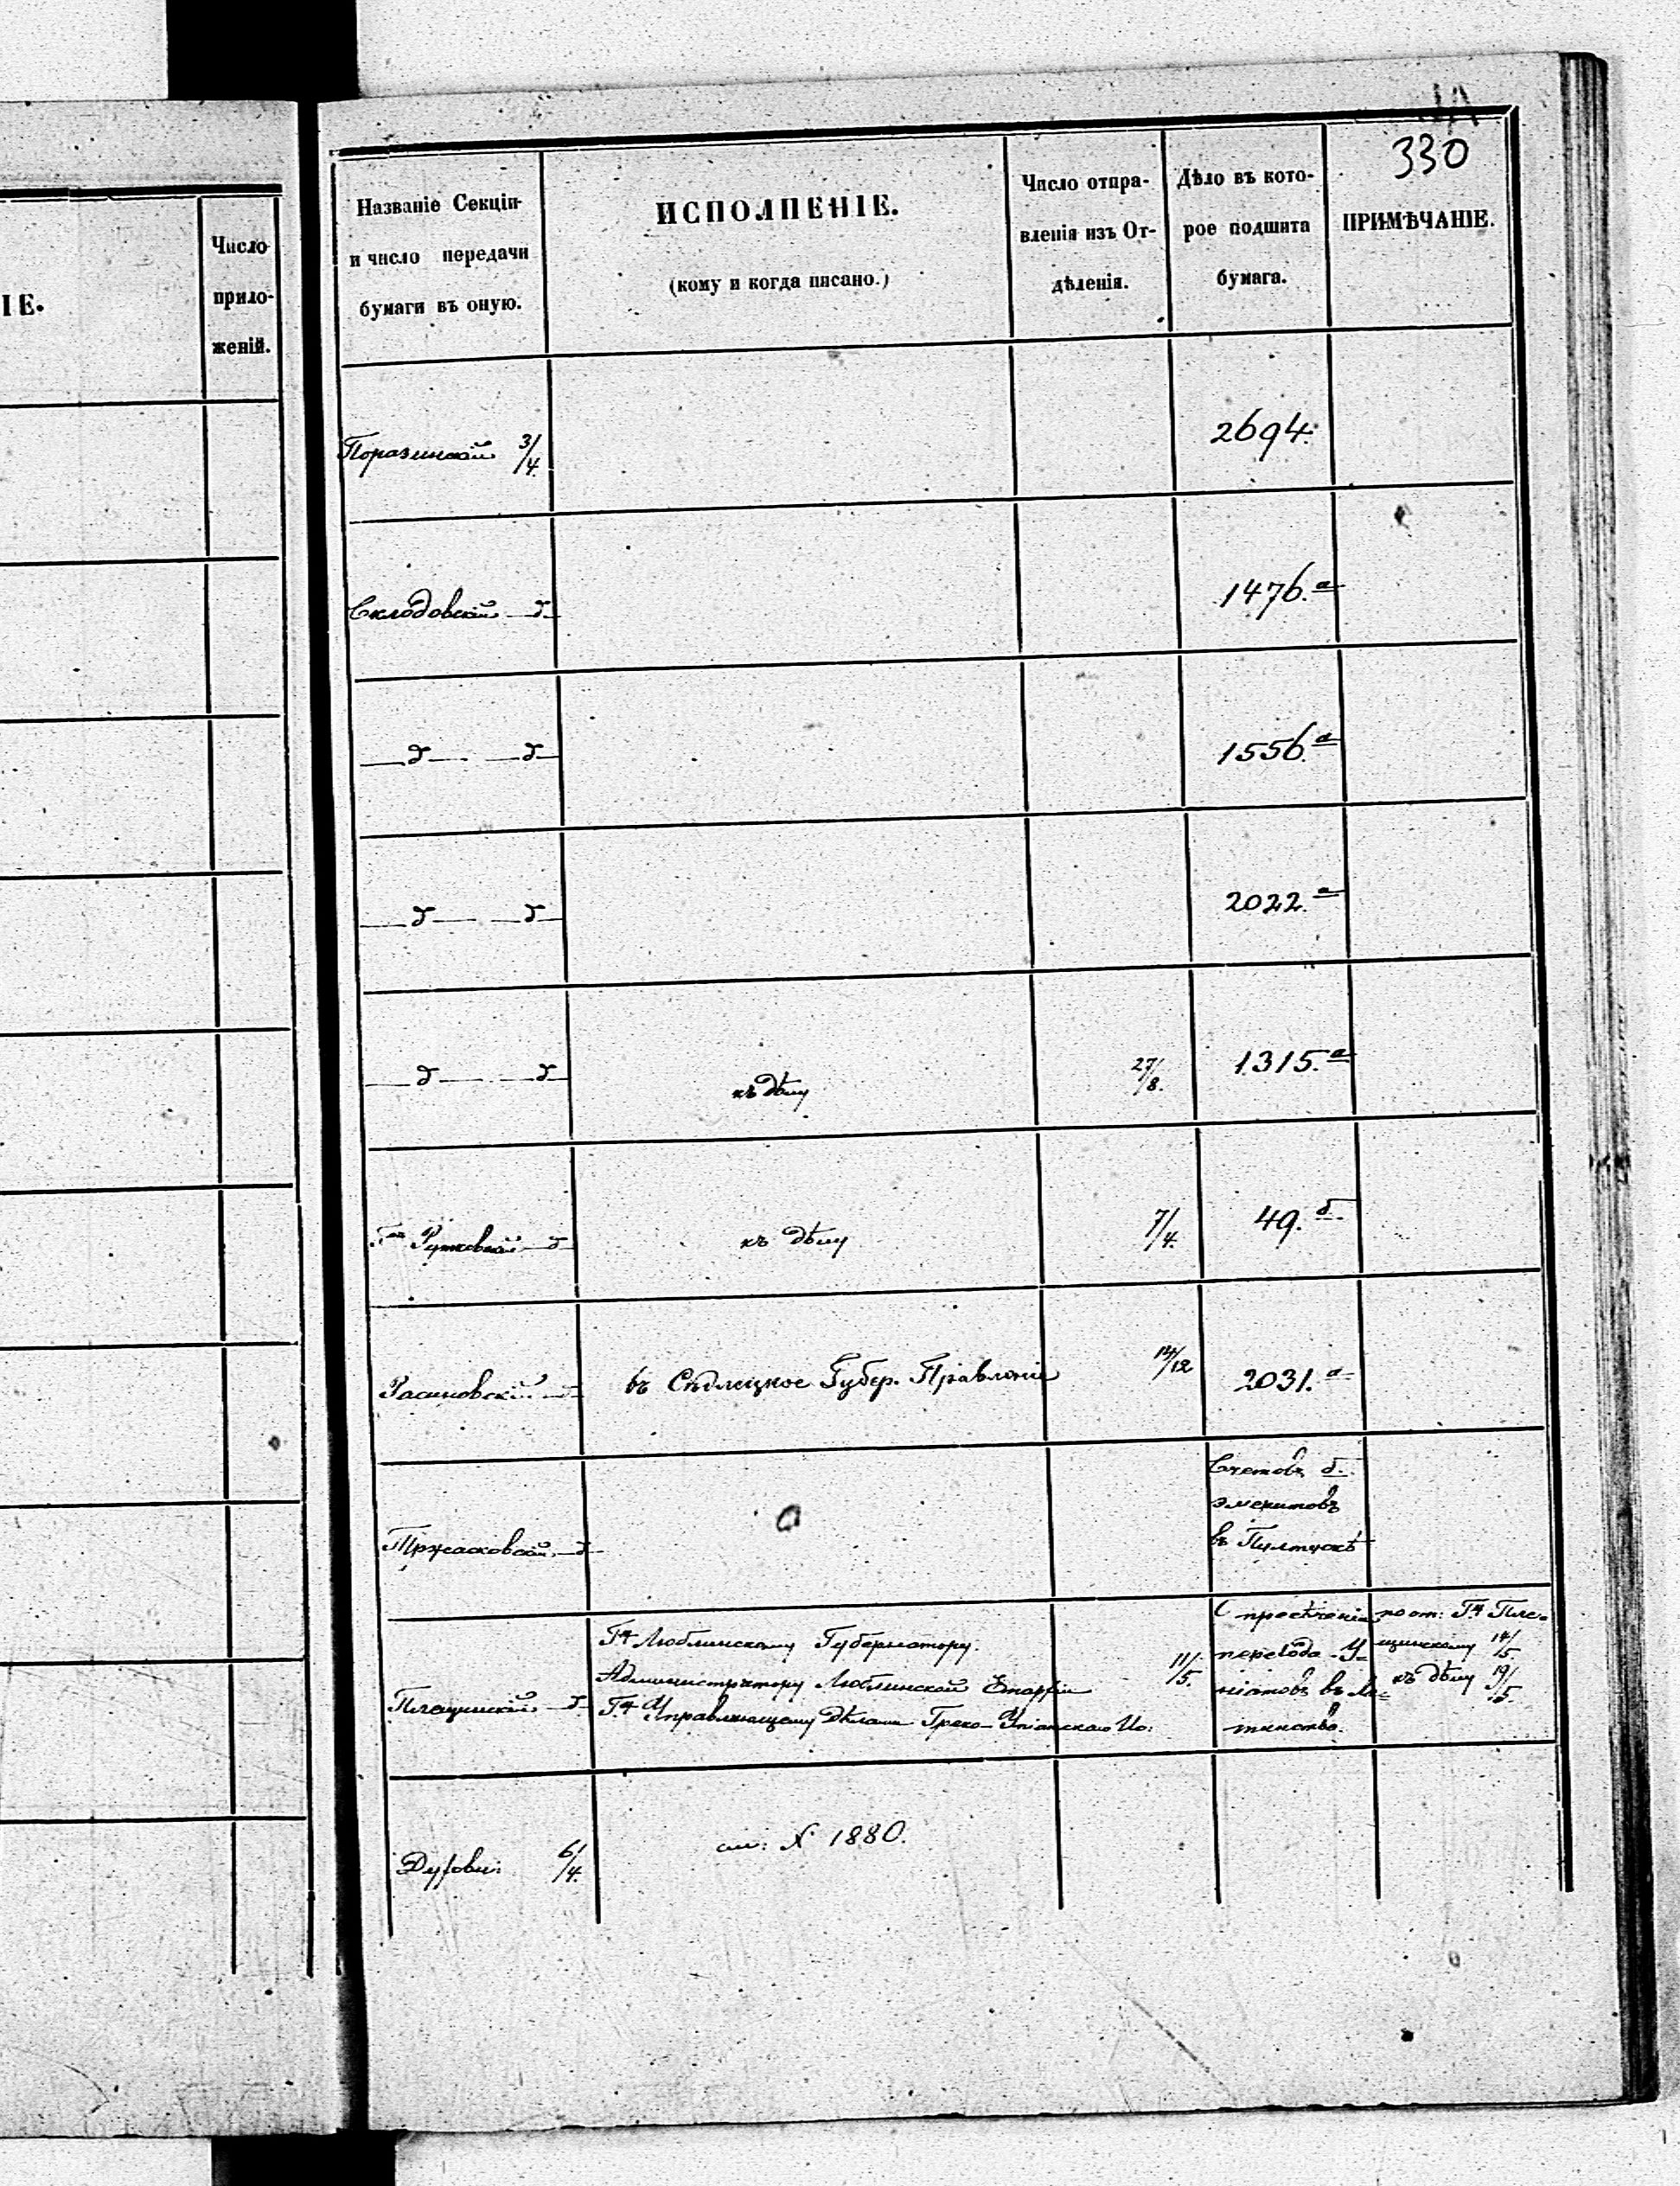 ІЕ.
Число
прило-
женій.
330
Названіе Секціи
и число передачи
бумаги въ оную.
ИСПОЛНЕНІЕ.
(кому и когда писано.)
Число отпра-
вленія изъ От-
дѣленія.
Дѣло въ кото-
рое подшита
бумага.
ПРИМѢЧАНІЕ.
Поразинскій 3/4.
2694.
Склодовскій —д—
1476.а
—д— —д—
1556.а
—д— —д—
2022.а
—д— —д—
къ дѣлу
27/8.
1315.а
Рутковскій —д—
къ дѣлу
7/4.
49. б.
Расиновскій —д—
въ Сѣдлецкое Губер. Правленіе
14/12
2031.а
Тржасковскій —д—
Счетовъ б.
эмеритовъ
въ Пултускѣ
Плещинскій —д—
Гну Люблинскому Губернатору.
Администратору Люблинской Епархіи
Гну Управляющему Дѣлами Греко-Уніатскаго Ис:
11/5.
О пресѣченіи
перехода У-
ніатовъ въ Ла-
тинство.
Гну Пле-
щинскому 14/5.
къ дѣлу 19/5.
6/4.
см: № 1880.